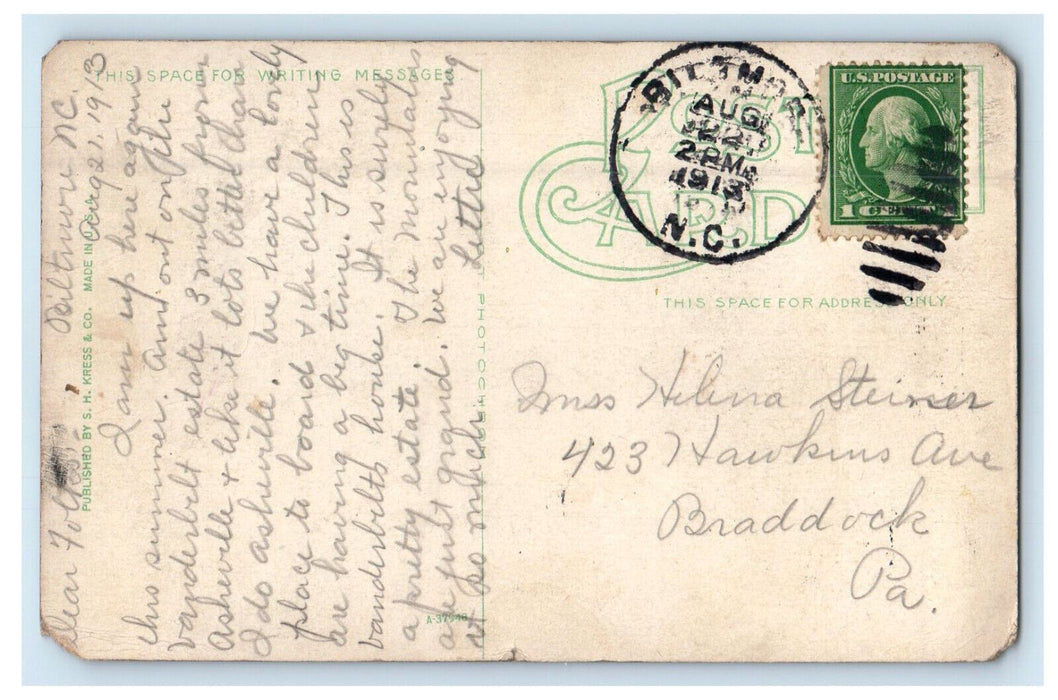 THIS SPACE FOR WRITING MESSAGES
Biltmore N.C.
Aug 21, 1913
Dear Folks:-
I am up here again
this summer. Am out on the
vanderbelt estate 3 miles from
Asheville & like it lots better than
I do asheville. We have a lovely
place to board & the children
are having a big time. This is
vanderbilts house. It is surely
a pretty estate. The mountains
are just grand. We are enjoying
it so much. Lettie
PUBLISHED BY S. H. KRESS & CO. MADE IN U.S.A.
PHOTOCHROM
A-37946
POST
CARD
BILTMORE
AUG
22
2 PM
1913
N.C.
U.S. POSTAGE
1 CENT 1
THIS SPACE FOR ADDRESS ONLY
Miss Helena Steiner
423 Hawkins Ave
Braddock
Pa.